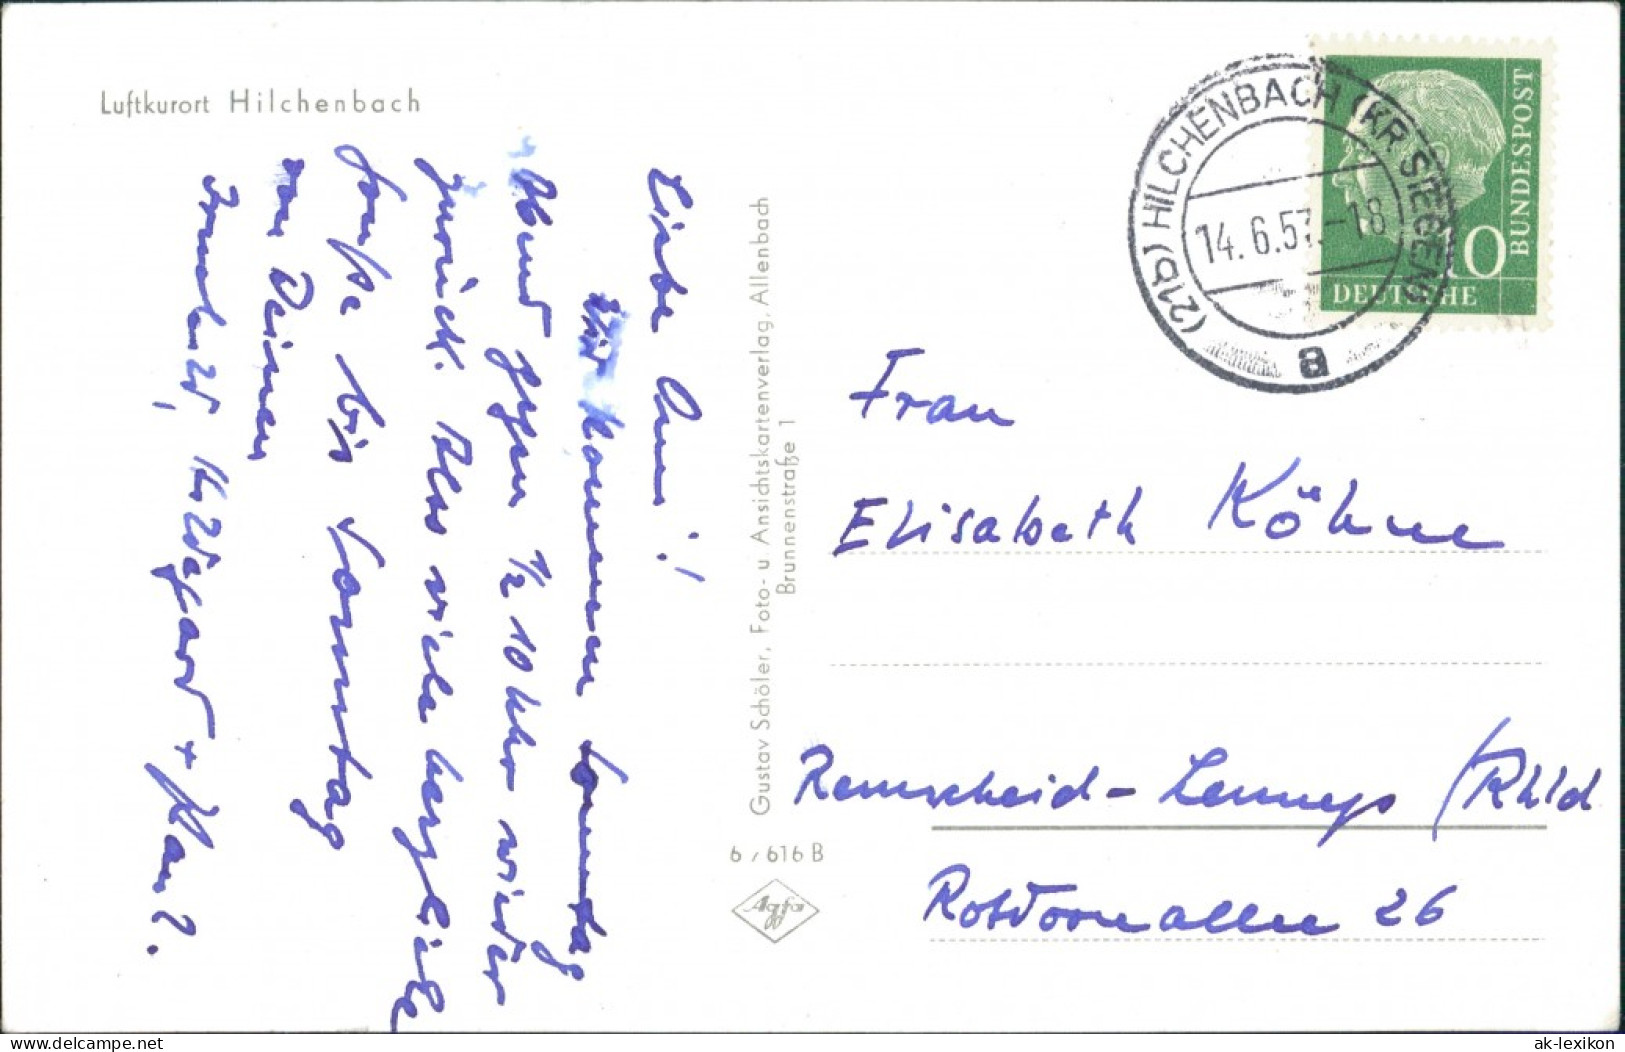 Luftkurort Hilchenbach
Liebe
Wir kommen Sonntag
Abend gegen ½ 10 Uhr wieder
zurück. Also viele herzliche
Grüße bis Sonntag
von Deinen
+
Gustav Schöler, Foto- u. Ansichtskartenverlag, Allenbach
Brunnenstraße 1
6/616 B
Agfa
(21b) HILCHENBACH (KR SIEGEN)
14.6.57.-18
a
DEUTSCHE
BUNDESPOST
10
Frau
Elisabeth Köhne
Remscheid-Lennep /Rhld
Rotdornallee 26
hier im Shop
ak-lexikon